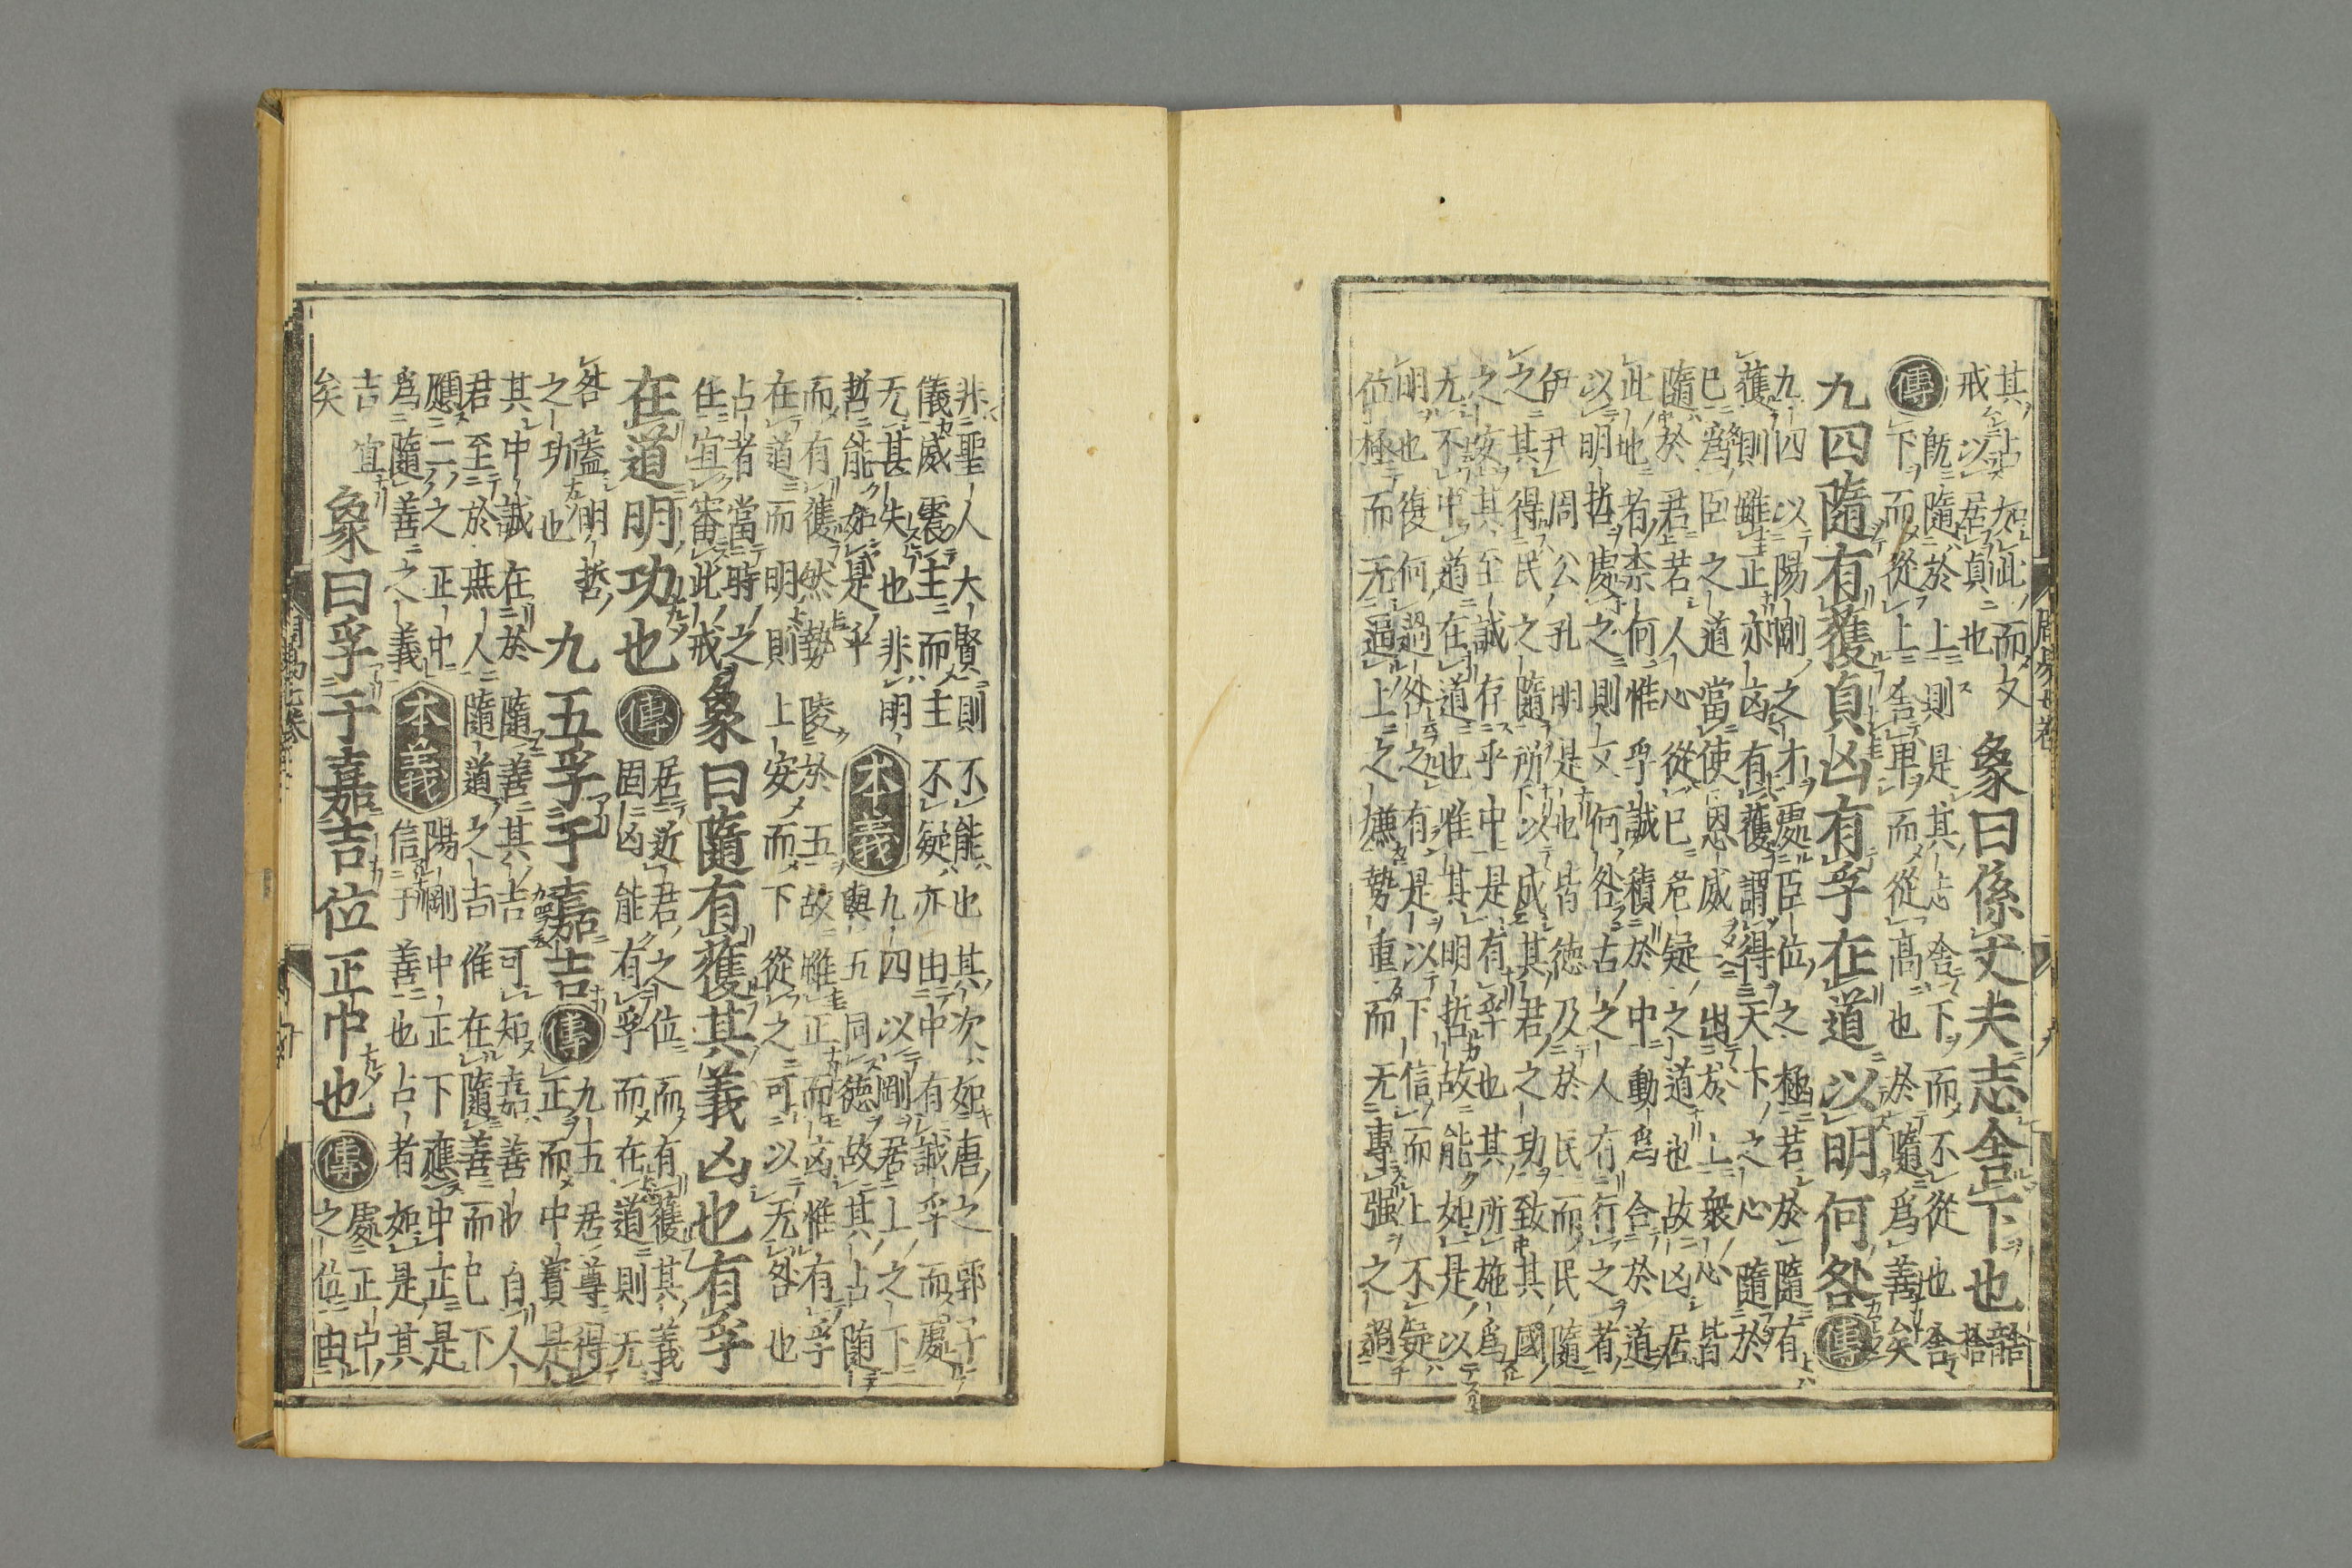 周易七卷 九
其占如此而又
戒以居貞也
象曰係丈夫志舍下也
舍音
捨
傳
既隨於上則是其志舍下而不從也舍
下而從上舍卑而從高也於隨為善矣
九四隨有獲貞凶有孚在道以明何咎傳
九四以陽剛之才處臣位之極若於隨有
獲則雖正亦凶有獲謂得天下之心隨於
已為臣之道當使恩威一出於上衆心皆
隨於君若人心從已危疑之道也故凶居
此地者柰何惟孚誠積於中動為合於道
以明哲處之則又何咎古之人有行之者
伊尹周公孔明是也皆德及於民而民隨
之其得民之隨所以成其君之功致其國
之安其至誠存乎中是有孚也其所施為
无不中道在道也惟其明哲故能如是以
明也復何過咎之有是以下信而上不疑
位極而无逼上之嫌勢重而无專强之過
非聖人大賢則不能也其次如唐之郭子
儀威震主而主不疑亦由中有誠孚而處
无甚失也非明
哲能如是乎
本義
九四以剛居上之下
與五同德故其占隨
而有獲然勢陵於五故雖正而凶惟有孚
在道而明則上安而下從之可以无咎也
占者當時之
任宜審此戒
象曰隨有獲其義凶也有孚
在道明功也傳
居近君之位而有獲其義
固凶能有孚而在道則无
咎蓋明哲
之功也
九五孚于嘉吉傳
九五居尊得
正而中實是
其中誠在於隨善其吉可知嘉善也自人
君至於庶人隨道之吉惟在隨善而已下
應二之正中
為隨善之義
本義
陽剛中正下應中正是
信于善也占者如是其
吉宜
矣
象曰孚于嘉吉位正中也傳
處正中
之位由
周易七卷 十